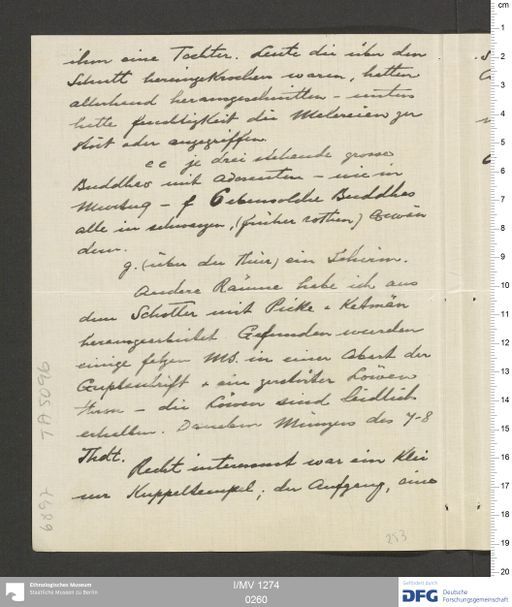 ihm eine Tochter. Leute die über den
Schutt hereingekrochen waren, hatten
allerhand herausgeschnitten - unten
hatte feuchtigkeit die Malereien zer
stört oder angegriffen.
e e je drei stehende grosse
Buddhas mit Adoranten - wie in
- f 6 ebensolche Buddhas
alle in schwarzen, (früher rothen) Gewän
dern.
g. (über der Thür) ein Schirm.
Andere Räume habe ich aus
dem Schotter mit Picke & Ketmän
herausgearbeitet. Gefunden wurden
einige fetzen MS. in einer Abart der
Guptaschrift & ein zerstörter Löwen
thron - die Löwen sind leidlich
erhalten. Daneben Münzen des 7-8
Thdt.
Recht interessant war ein klei
ner Kuppeltempel; der Aufgang, eine
TA 5096
6897
253
Ethnologisches Museum
Staatliche Museen zu Berlin
I/MV 1274
0260
Gefördert durch
DFG Deutsche
Forschungsgemeinschaft
cm
1
2
3
4
5
6
7
8
9
10
11
12
13
14
15
16
17
18
19
20